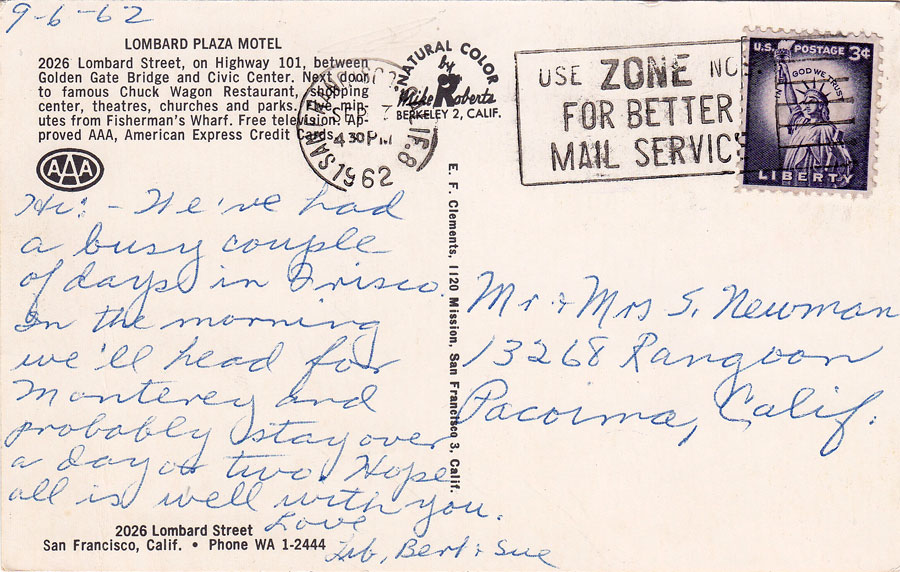 9-6-62
LOMBARD PLAZA MOTEL
2026 Lombard Street, on Highway 101, between
Golden Gate Bridge and Civic Center. Next door
to famous Chuck Wagon Restaurant, shopping
center, theatres, churches and parks. Five min-
utes from Fisherman's Wharf. Free television. Ap-
proved AAA, American Express Credit Cards.
AAA
Hi: - We've had
a busy couple
of days in Frisco.
In the morning
we'll head for
Monterey and
probably stay over
a day or two. Hope
all is well with you.
Love
Bert & Sue
2026 Lombard Street
San Francisco, Calif. • Phone WA 1-2444
NATURAL COLOR
by
Mike Roberts
BERKELEY 2, CALIF.
SAN
4 30 PM
1962
E. F. Clements, 1120 Mission, San Francisco 3, Calif.
USE ZONE NO
FOR BETTER
MAIL SERVIC
U.S. POSTAGE 3¢
IN GOD WE TRUST
LIBERTY
Mr & Mrs S. Newman
13268 Rangoon
Pacoima, Calif.